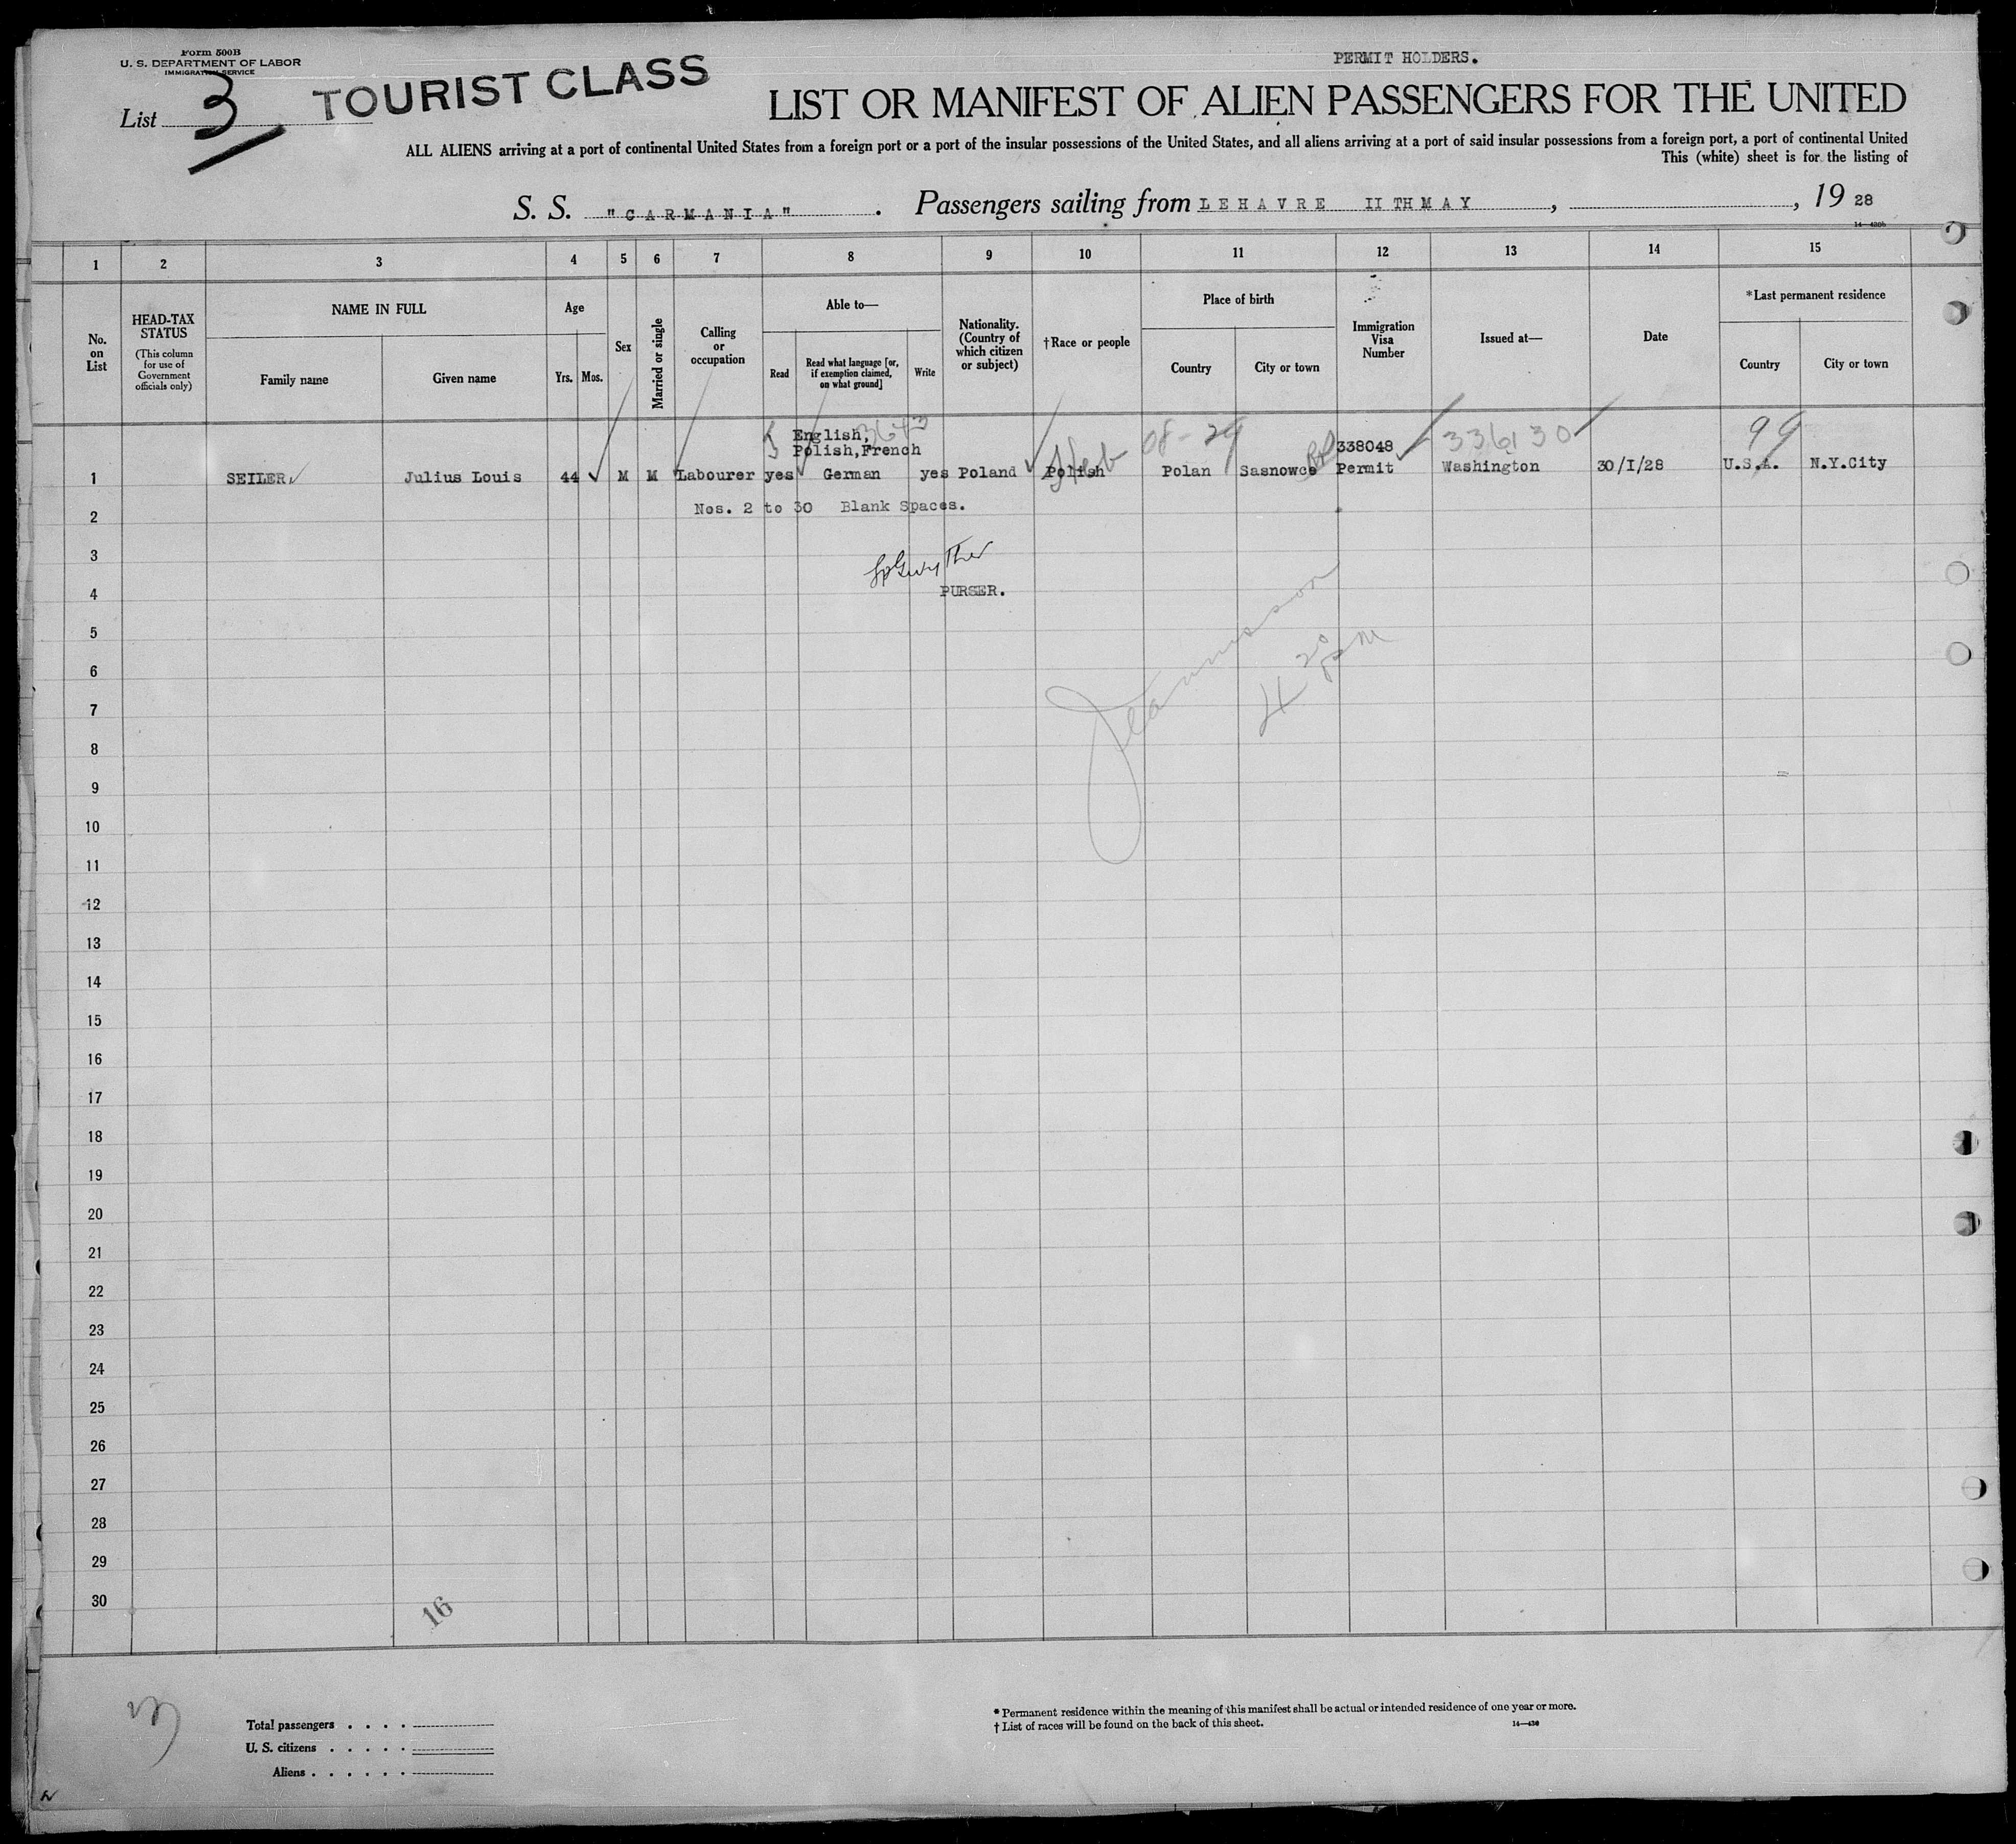 Form 500B
U. S. DEPARTMENT OF LABOR
IMMIGRATION SERVICE
PERMIT HOLDERS.
List 3
TOURIST CLASS
LIST OR MANIFEST OF ALIEN PASSENGERS FOR THE UNITED
ALL ALIENS arriving at a port of continental United States from a foreign port or a port of the insular possessions of the United States, and all aliens arriving at a port of said insular possessions from a foreign port, a port of continental United
This (white) sheet is for the listing of
S. S. "CARMANIA". Passengers sailing from LEHAVRE II TH MAY, , 19 28
1 2 3 4 5 6 7 8 9 10 11 12 13 14 15
No. on List
HEAD-TAX STATUS
(This column for use of Government officials only)
NAME IN FULL
Family name
Given name
Age
Yrs. Mos.
Sex
Married or single
Calling or occupation
Able to—
Read
Read what language [or, if exemption claimed, on what ground]
Write
Nationality. (Country of which citizen or subject)
†Race or people
Place of birth
Country
City or town
Immigration Visa Number
Issued at—
Date
*Last permanent residence
Country
City or town
English, 08-29 338048 336130 99
Polish,French
1 SEILER, Julius Louis 44 M M Labourer yes German yes Poland Polish Heb Polan Sasnowce Permit Washington 30/I/28 U.S.A. N.Y.City
2 Nos. 2 to 30 Blank Spaces.
3
4 PURSER.
5
6
7
8
9
10
11
12
13
14
15
16
17
18
19
20
21
22
23
24
25
26
27
28
29
30
16
3
Total passengers
U. S. citizens
Aliens
* Permanent residence within the meaning of this manifest shall be actual or intended residence of one year or more.
† List of races will be found on the back of this sheet.
14—430